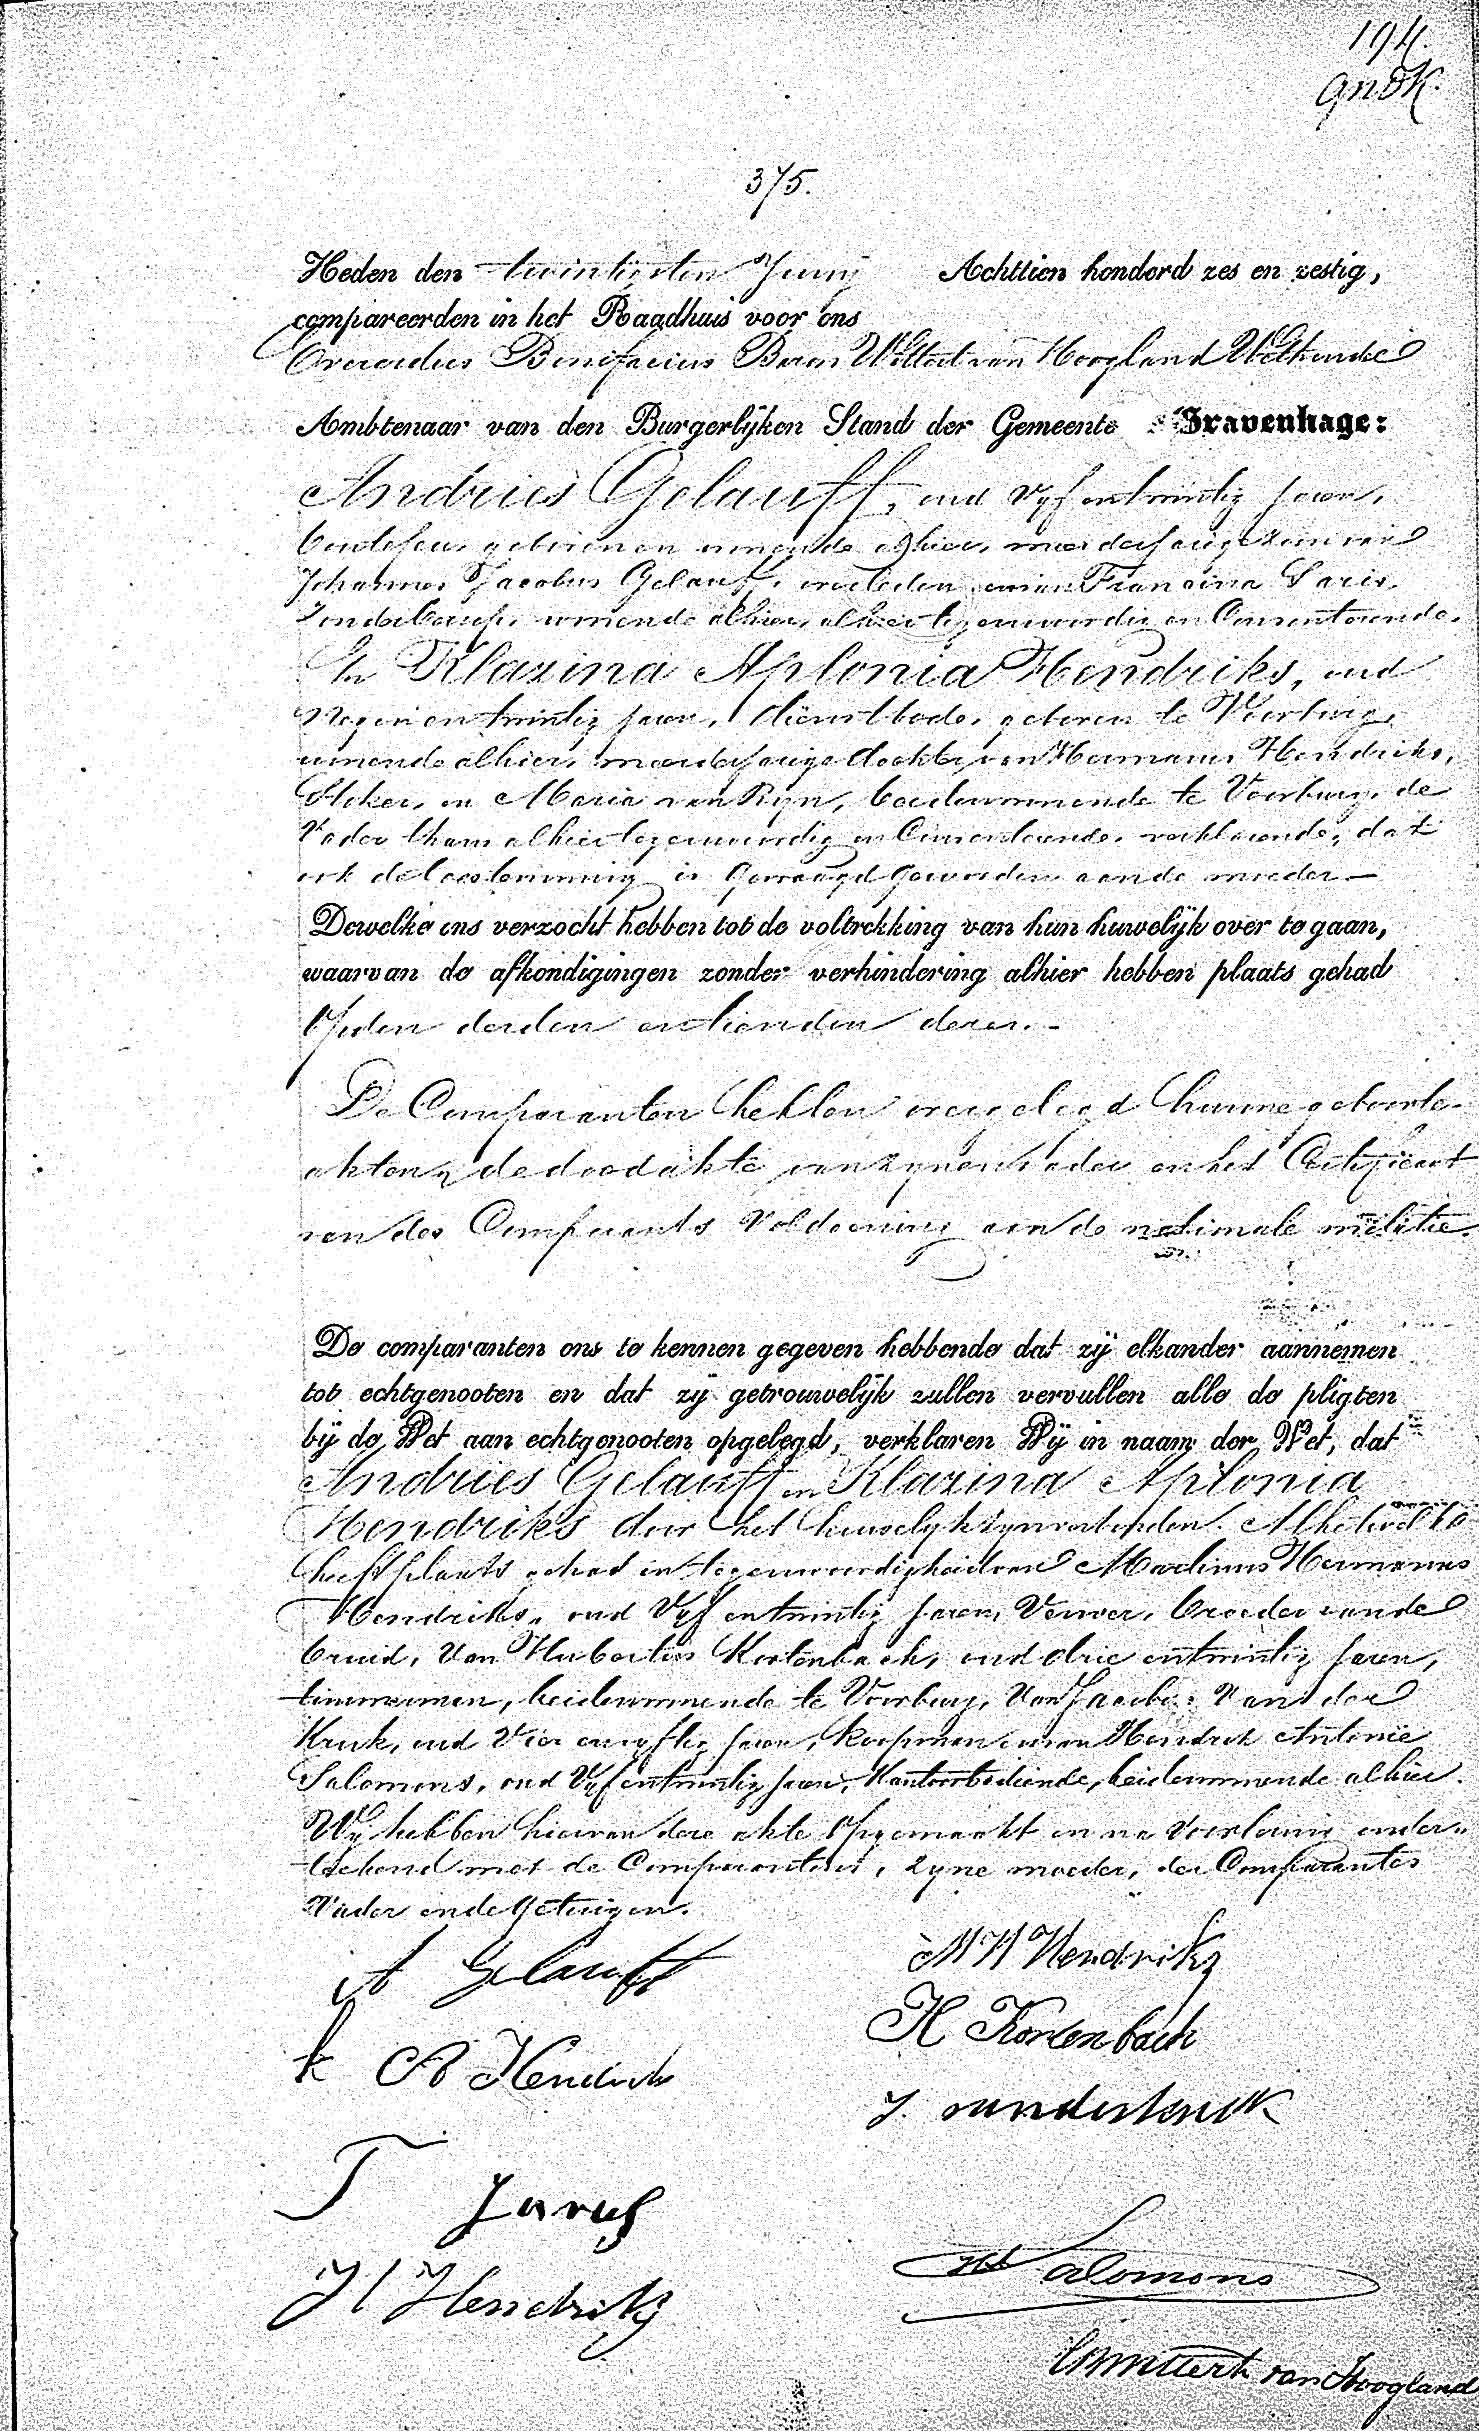 194.
375.
Heden den twintigsten Junij Achttien honderd zes en zestig,
compareerden in het Raadhuis voor ons
Everardus Bonifacius Baron Wittert van Hoogland Wethouder
Ambtenaar van den Burgerlijken Stand der Gemeente 's Gravenhage:
Andries Gelauff, oud Vijf entwintig jaren,
geboren en wonende alhier, meerderjarige zoon van
Johannes Jacobus Gelauff, overleden, en van Francina Saris,
Zonder beroep, wonende alhier, alhier tegenwoordig en Consenterende.
En Klazina Aplonia Hendriks, oud
Negen en twintig jaren, dienstbode, geboren te Voorburg,
wonende alhier, meerderjarige dochter van Hermanus Hendriks,
Stoker, en Maria van Rijn, beide wonende te Voorburg, de
Vader thans alhier tegenwoordig en Consenterende, verklarende, dat
ook de toestemming is gevraagd geworden aan de moeder.—
Dewelke ons verzocht hebben tot de voltrekking van hun huwelijk over te gaan,
waarvan de afkondigingen zonder verhindering alhier hebben plaats gehad
Op den derden en tienden dezer.-
De Comparanten hebben overgelegd hunne geboorte-
akten, de doodakte van zijnen vader en het Certificaat
van des Comparants Voldoening aan de nationale militie.
De comparanten ons te kennen gegeven hebbende dat zij elkander aannemen
tot echtgenooten en dat zij getrouwelijk zullen vervullen alle de pligten
bij de Wet aan echtgenooten opgelegd, verklaren Wij in naam der Wet, dat
Andries Gelauff en Klazina Aplonia
Hendriks door het huwelijk zijn verbonden. Alhetwelk
heeft plaats gehad in tegenwoordigheid van Martinus Hermanus
Hendriks, oud Vijf entwintig jaren, Verwer, broeder van de
bruid, Van Hubertus Kortenbach, oud drie entwintig jaren,
timmerman, beide wonende te Voorburg, Van Jacobus Van der
Kruk, oud Vier en vijftig jaren, koopman, en van Hendrik Antonie
Salomons, oud Vijf entwintig jaren, Kantoorbediende, beide wonende alhier.
Wij hebben hiervan deze akte opgemaakt en na Voorlezing onder-
teekend met de Comparanten, zijne moeder, der Comparantes
Vader en de getuigen.
A Gelauff
M H Hendriks
K A Hendriks
H Kortenbach
J. van der kruk
F Sarus
H Hendriks
HA Salomons
Wittert van Hoogland